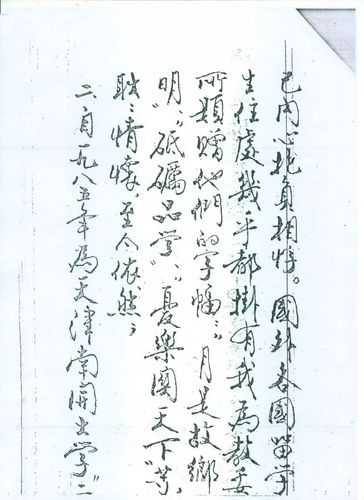 己内心地真相悖。國外各國留学
生住處幾乎都掛有我為教委
所題贈他們的字幅：，月是故鄉
明，“砥礪品学”、“憂樂園天下”等，
耿：情懷，至今依然；
二、自一九八五年為天津南開大学”二